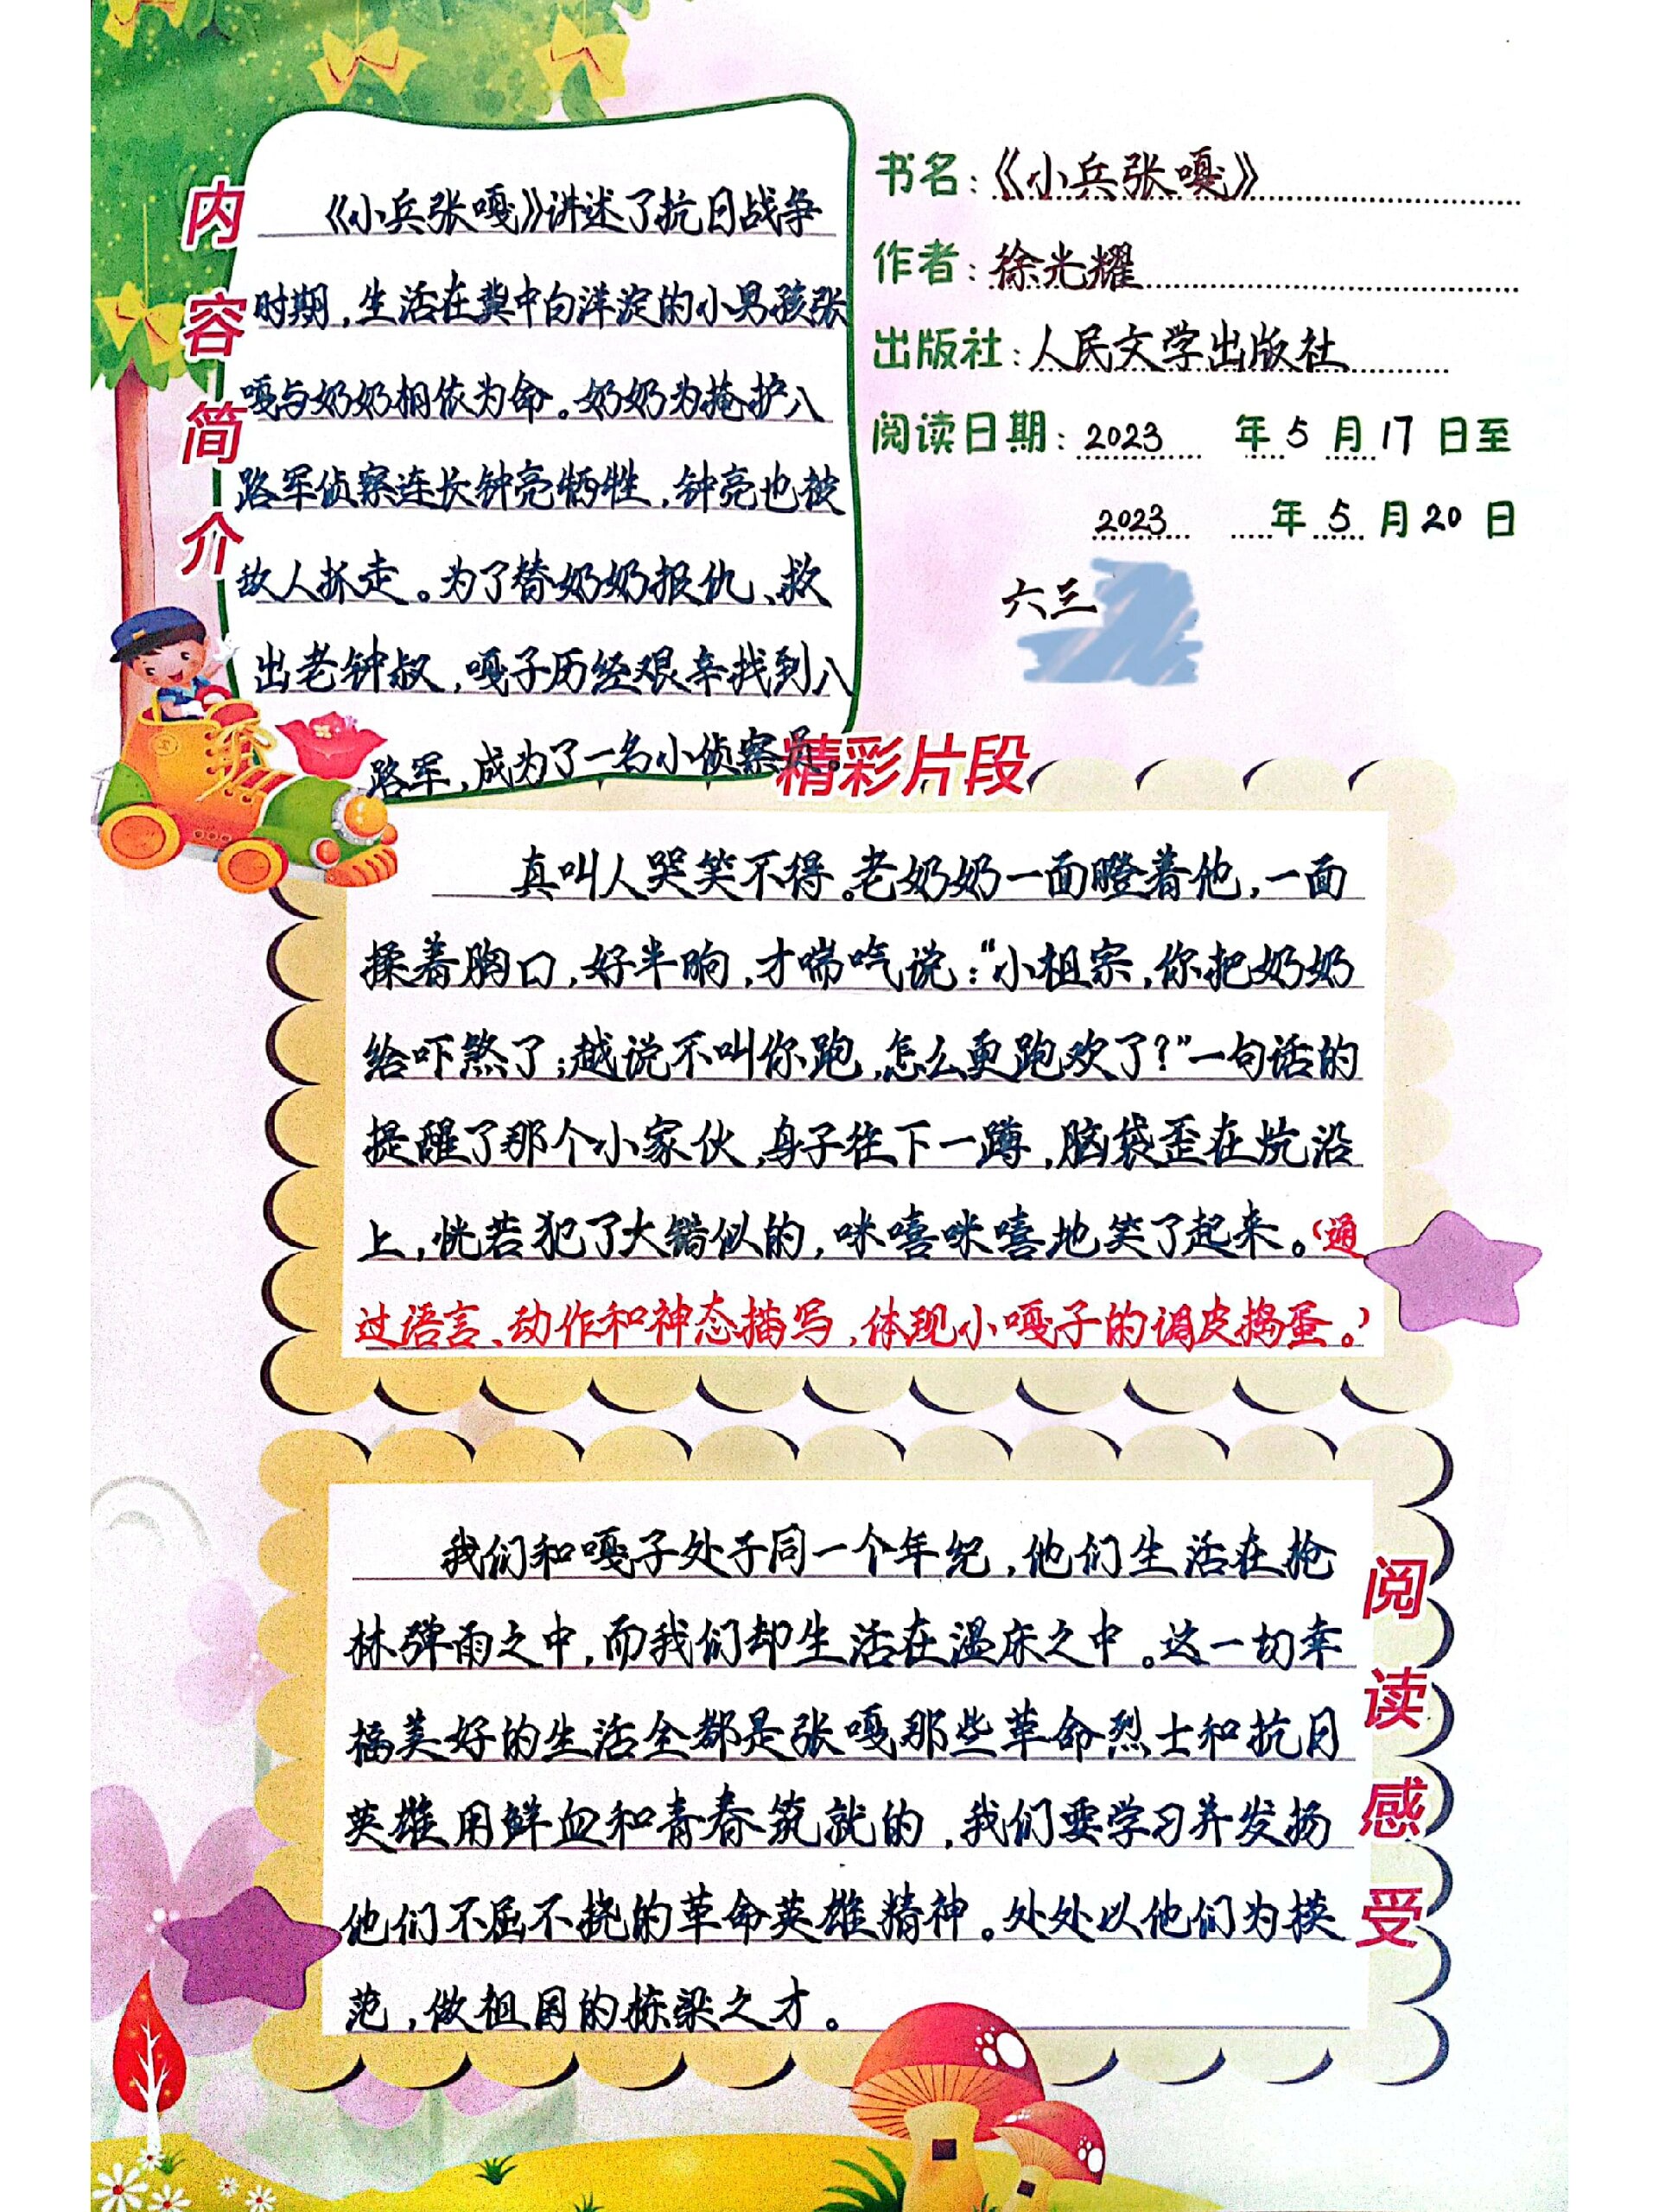 内容简介
《小兵张嘎》讲述了抗日战争
时期，生活在冀中白洋淀的小男孩张
嘎与奶奶相依为命。奶奶为掩护八
路军侦察连长钟亮牺牲，钟亮也被
敌人抓走。为了替奶奶报仇、救
出老钟叔，嘎子历经艰辛找到八
路军，成为了一名小侦察员。
书名：《小兵张嘎》
作者：徐光耀
出版社：人民文学出版社
阅读日期：2023 年 5 月 17 日至
2023 年 5 月 20 日
六三
精彩片段
真叫人哭笑不得。老奶奶一面瞪着他，一面
揉着胸口，好半晌，才喘吁说：“小祖宗，你把奶奶
给吓煞了；越说不叫你跑，怎么更跑欢了？”一句话的
提醒了那个小家伙，身子往下一蹲，脑袋歪在炕沿
上，恍若犯了大错似的，咪嘻咪嘻地笑了起来。（通
过语言、动作和神态描写，体现小嘎子的调皮捣蛋。）
我们和嘎子处于同一个年纪，他们生活在枪
林弹雨之中，而我们却生活在温床之中。这一切幸
福美好的生活全都是张嘎那些革命烈士和抗日
英雄用鲜血和青春筑就的，我们要学习并发扬
他们不屈不挠的革命英雄精神。处处以他们为模
范，做祖国的栋梁之才。
阅读感受